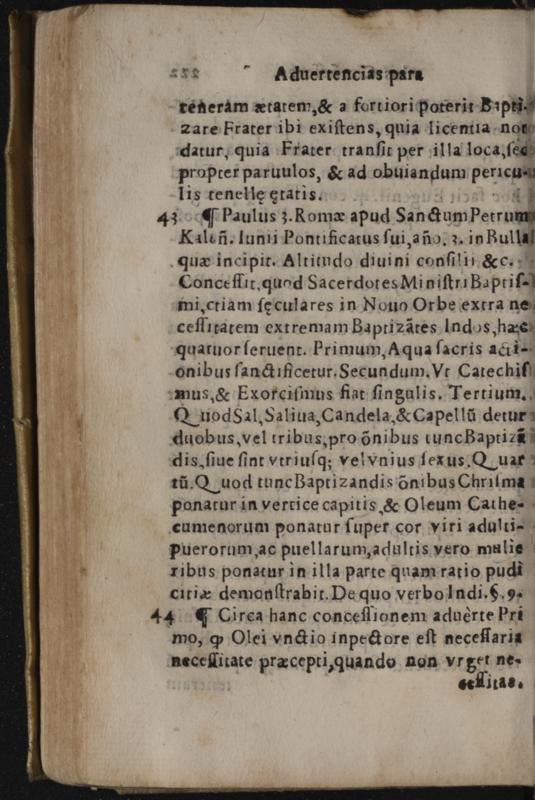 Aduertencias para
teneram ætatem,& a fortiori poterit Bapti-
zare Frater ibi existens, quia licentia non
datur, quia Frater transit per illa loca, sed
propter paruulos, & ad obuiandum pericu-
lis tenellę ętatis.
43 ¶ Paulus 3. Romæ apud Sanctum Petrum
Kaleñ. Iunii Pontificatus sui, año. 3. in Bulla
quæ incipit. Altitudo diuini consilii &c.
Concessit, quod Sacerdotes Ministri Baptis-
mi, etiam sęculares in Nouo Orbe extra ne
cessitatem extremam Baptizãtes Indos, hæc
quatuor seruent. Primum, Aqua sacris acti-
onibus sanctificetur. Secundum. Vt Catechis
mus, & Exorcismus fiat singulis. Tertium.
Quod Sal, Saliua, Candela, & Capellũ detur
duobus, vel tribus, pro õnibus tunc Baptizã
dis, siue sint vtriusq; vel vnius sexus. Quar
tũ. Quod tunc Baptizandis õnibus Chrisma
ponatur in vertice capitis, & Oleum Cathe-
cumenorum ponatur super cor viri adulti-
puerorum, ac puellarum, adultis vero mulie
ribus ponatur in illa parte quam ratio pudi
citiæ demonstrabit. De quo verbo Indi. §. 9.
44 ¶ Circa hanc concessionem aduerte Pri
mo, ꝙ Olei vnctio in pectore est necessaria
necessitate præcepti, quando non vrget ne-
cessitas.